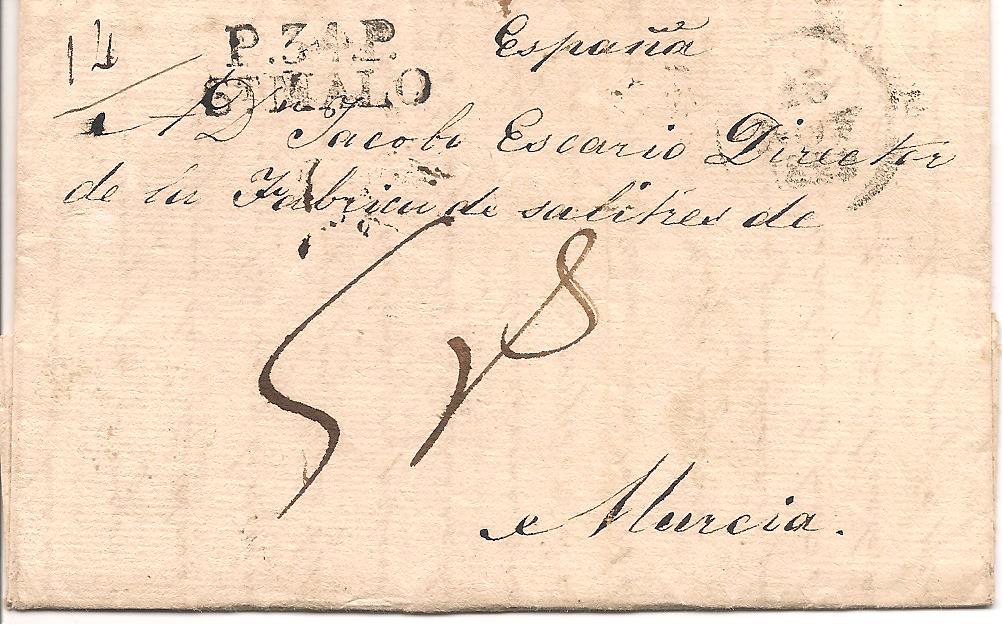 14
P.34.P.
ST MALO
España
A Dn Jacobo Escario Director
de la Fabrica de salitres de
58
Murcia.